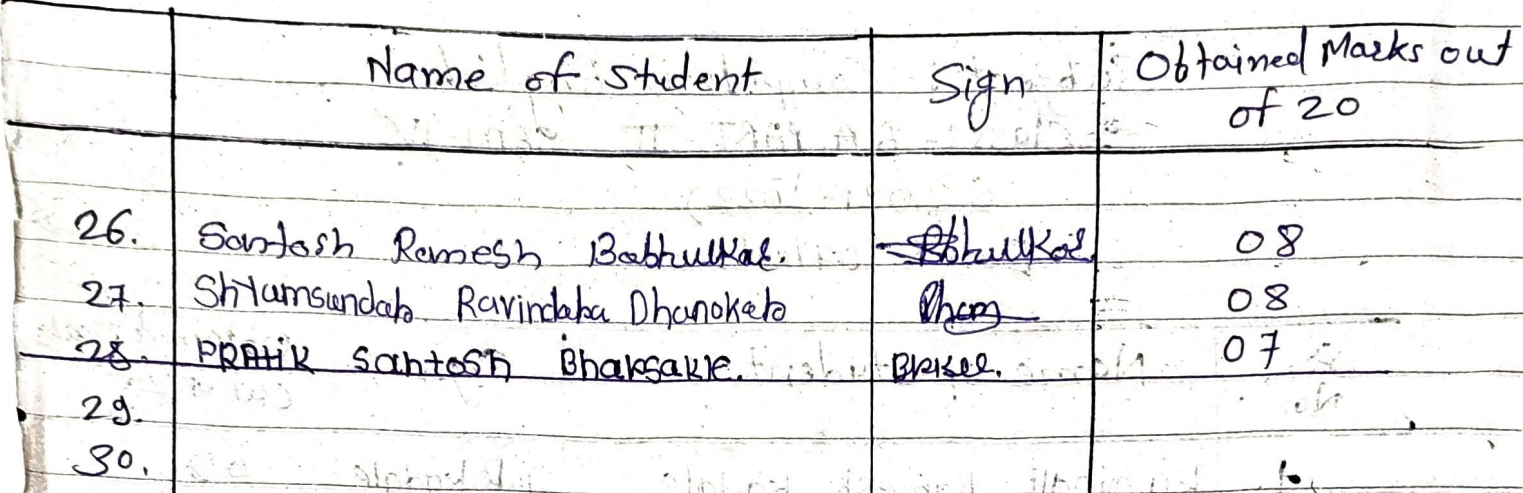 Name of Student Sign Obtained Marks out
of 20
26. Santosh Ramesh Babhulkar. 08
27. Shyamsundar Ravindara Dhanokar 08
28. PRATIK Santosh Bhaksakle. 07
29.
30.